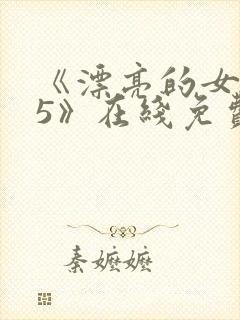 《漂亮的女
5》在线免费
秦嬷嬷